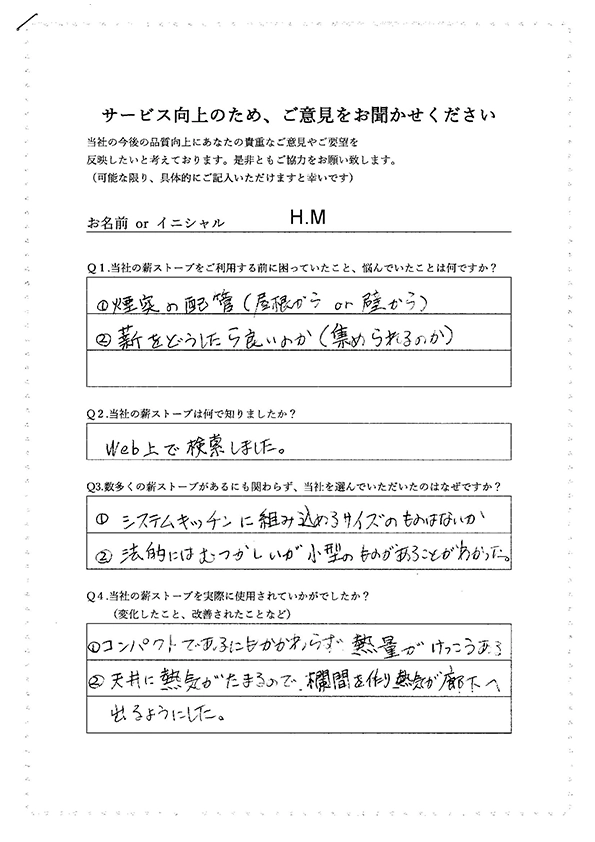 サービス向上のため、ご意見をお聞かせください
当社の今後の品質向上にあなたの貴重なご意見やご要望を
反映したいと考えております。是非ともご協力をお願い致します。
（可能な限り、具体的にご記入いただけますと幸いです）
お名前 or イニシャル H.M
Q1.当社の薪ストーブをご利用する前に困っていたこと、悩んでいたことは何ですか？
①煙突の配管（屋根から or 壁から）
②薪をどうしたら良いのか（集められるのか）
Q2.当社の薪ストーブは何で知りましたか？
Web上で検索しました。
Q3.数多くの薪ストーブがあるにも関わらず、当社を選んでいただいたのはなぜですか？
① システムキッチンに組み込めるサイズのものはないか
② 法的にはむつかしいが小型のものがあることがわかった。
Q4.当社の薪ストーブを実際に使用されていかがでしたか？
（変化したこと、改善されたことなど）
①コンパクトであるにもかかわらず熱量がけっこうある
②天井に熱気がたまるので、欄間を作り熱気が廊下へ
出るようにした。